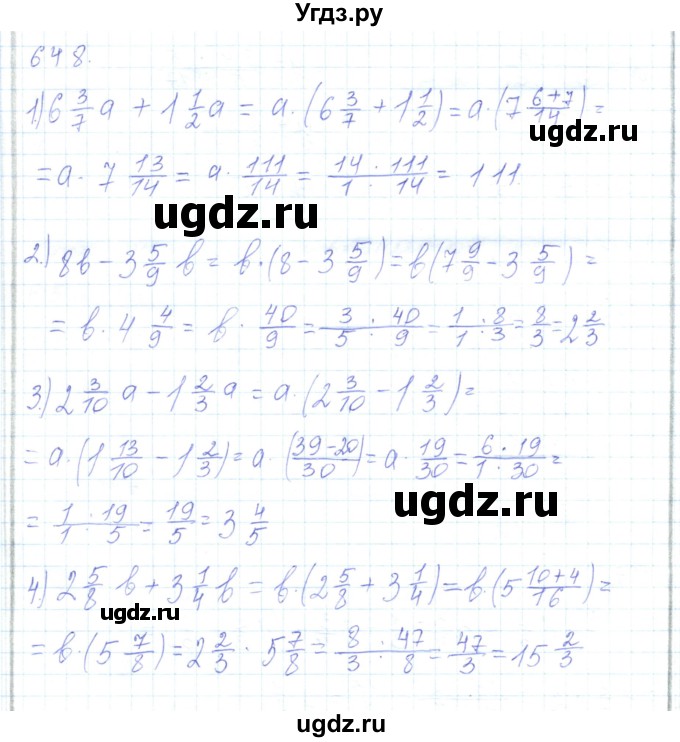 Угдз.ру
648.
1) 6 3/7 a + 1 1/2 a = a · (6 3/7 + 1 1/2) = a · (7 (6+7)/14) =
= a · 7 13/14 = a · 111/14 = (14 · 111)/(1 · 14) = 111
ugdz.ru
2.) 8b − 3 5/9 b = b · (8 − 3 5/9) = b (7 9/9 − 3 5/9) =
= b · 4 4/9 = b · 40/9 = (3 · 40)/(5 · 9) = (1 · 8)/(1 · 3) = 8/3 = 2 2/3
3.) 2 3/10 a − 1 2/3 a = a · (2 3/10 − 1 2/3) =
= a · (1 13/10 − 1 2/3) = a · ((39−20)/30) = a · 19/30 = (6 · 19)/(1 · 30) =
ugdz.ru
= (1 · 19)/(1 · 5) = 19/5 = 3 4/5
4) 2 5/8 b + 3 1/4 b = b · (2 5/8 + 3 1/4) = b · (5 (10+4)/16) =
ugdz.ru
= b · (5 7/8) = 2 2/3 · 5 7/8 = (8 · 47)/(3 · 8) = 47/3 = 15 2/3
ugdz.ru
ugdz.ru